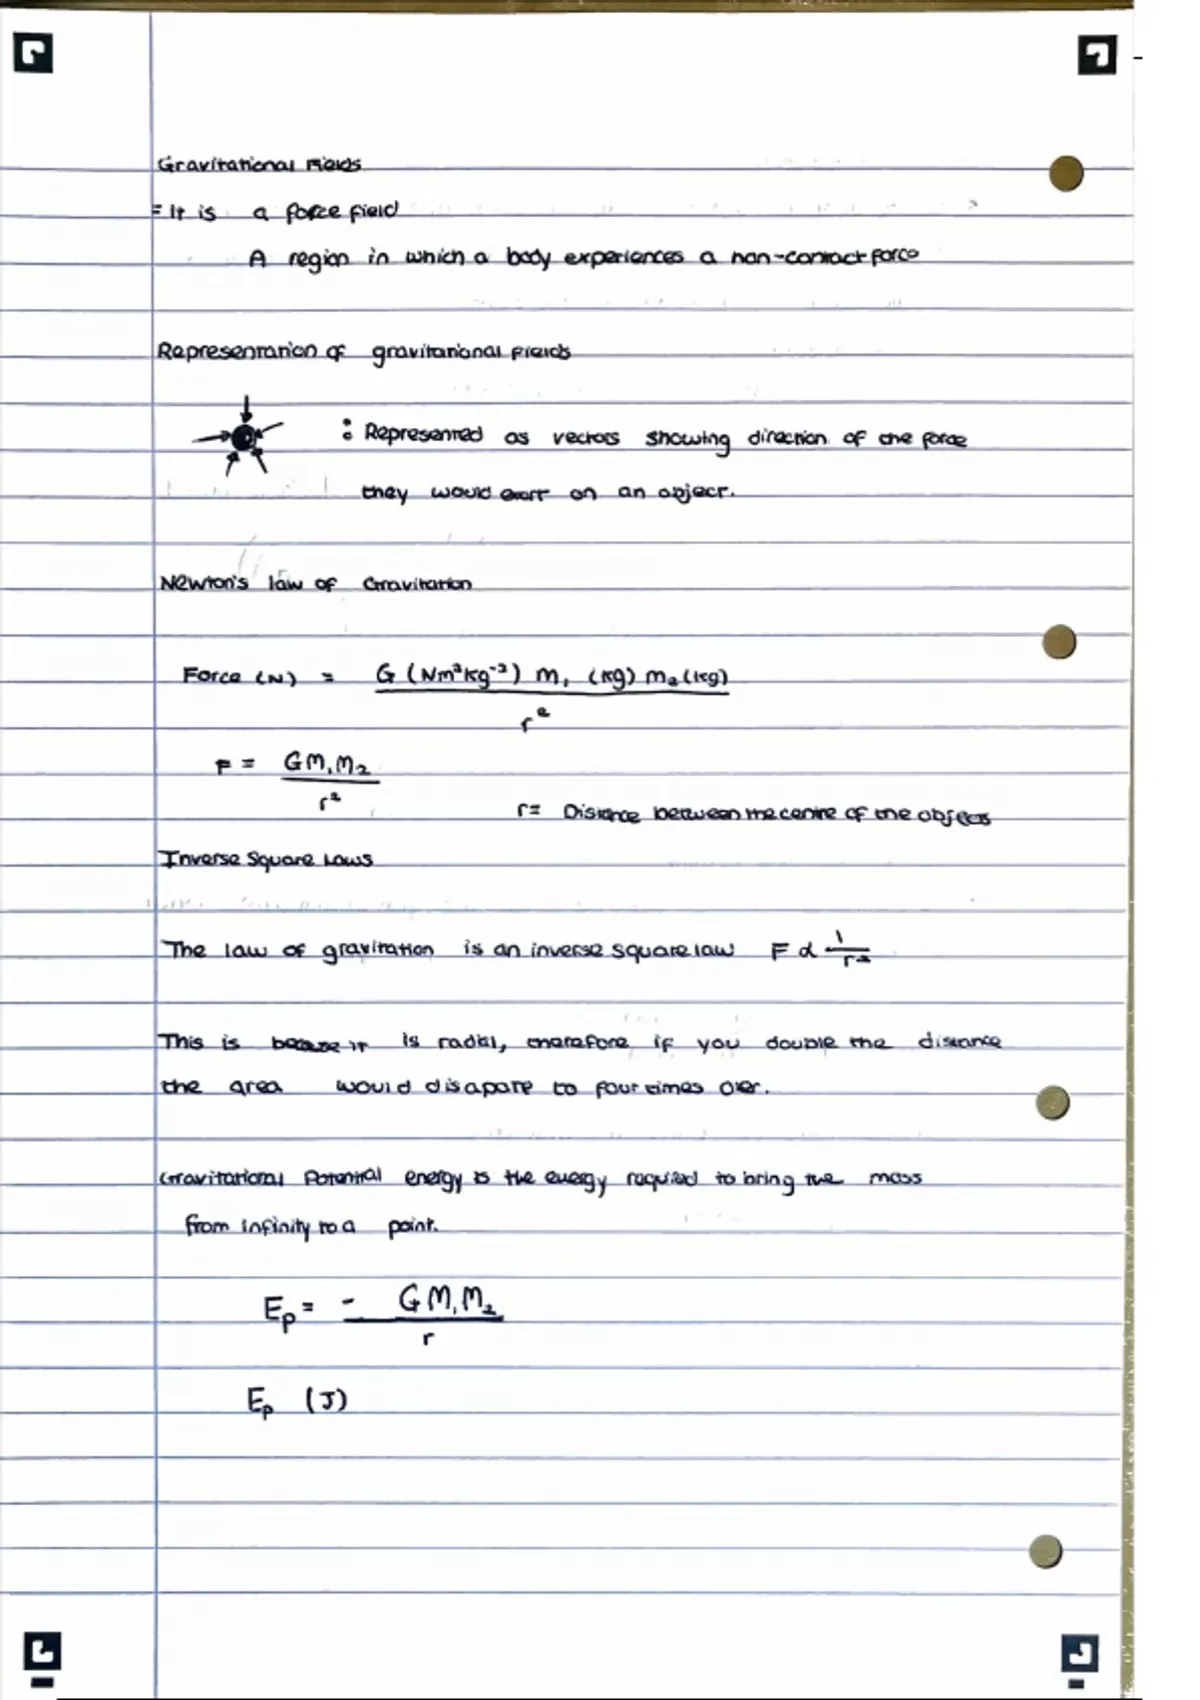 Gravitational Fields
= It is a force field
A region in which a body experiences a non-contact force
Representation of gravitational fields
: Represented as vectors showing direction of the force
they would exert on an object.
Newton's law of Gravitation
Force (N) = G (Nm²kg⁻²) m₁ (kg) m₂ (kg)
r²
F = GM₁M₂
r²
r= Distance between the centre of the objects
Inverse Square Laws
The law of gravitation is an inverse square law F ∝ 1
r²
This is because it is radial, therefore if you double the distance
the area would disapate to four times over.
Gravitational Potential energy is the energy required to bring the mass
from infinity to a point.
Eₚ = - GM₁M₂
r
Eₚ (J)